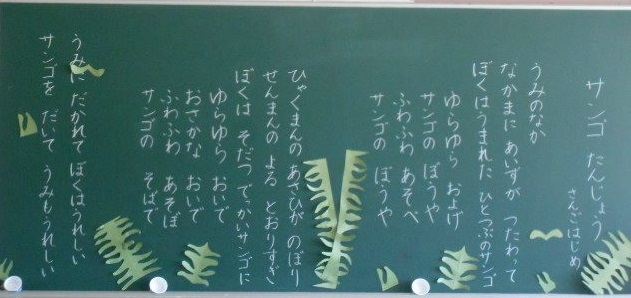 サンゴ たんじょう
さんごはじめ
うみのなか
なかまに あいずが つたわって
ぼくはうまれた ひとつぶのサンゴ
ゆらゆら およげ
サンゴの ぼうや
ふわふわ あそべ
サンゴの ぼうや
ひゃくまんの あさひが のぼり
せんまんの よる とおりすぎ
ぼくは そだつ でっかいサンゴに
ゆらゆら おいで
おさかな おいで
ふわふわ あそぼ
サンゴの そばで
うみに だかれて ぼくはうれしい
サンゴを だいて うみもうれしい